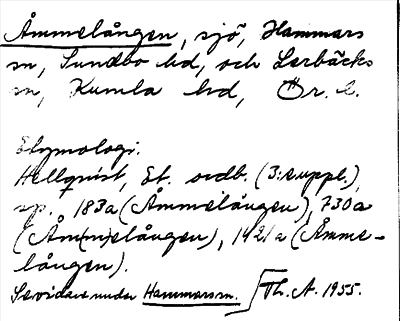 Åmmelången, sjö, Hammars
sn, Sundbo hd, och Lerbäcks
sn, Kumla hd, Ör. l.
Etymologi.
Hellquist, Et. ordb. (3:suppl.),
sp. 183a (Åmmelången), 730a
(Åm(m)elången), 1421a (Åmme-
lången).
Se vidare under Hammars sn. Th. A. 1955.